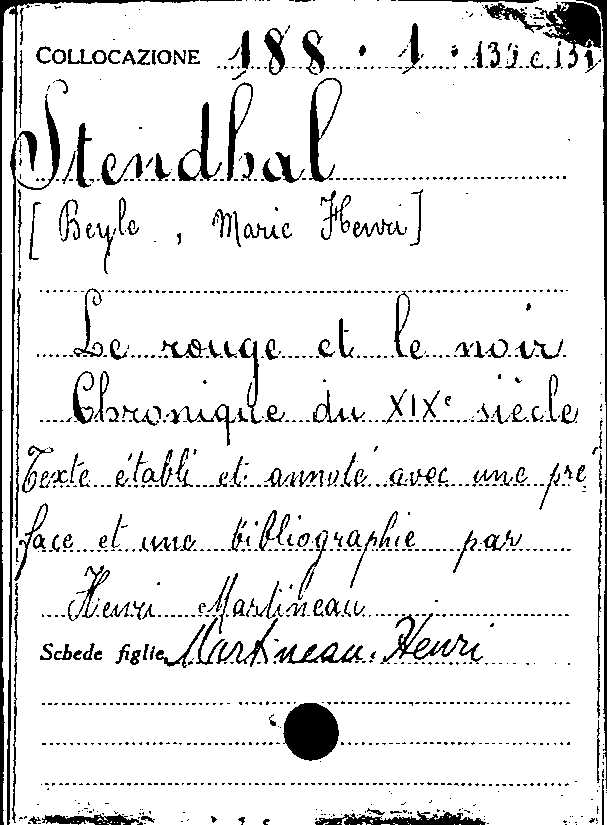 COLLOCAZIONE 188 . 1 . 139 e
Stendhal
[ Beyle , Marie Henri ]
Le rouge et le noir
Chronique du XIXe siècle
Texte établi et annoté avec une pré
face et une bibliographie par
Henri Martineau
Schede figlie Martineau, Henri